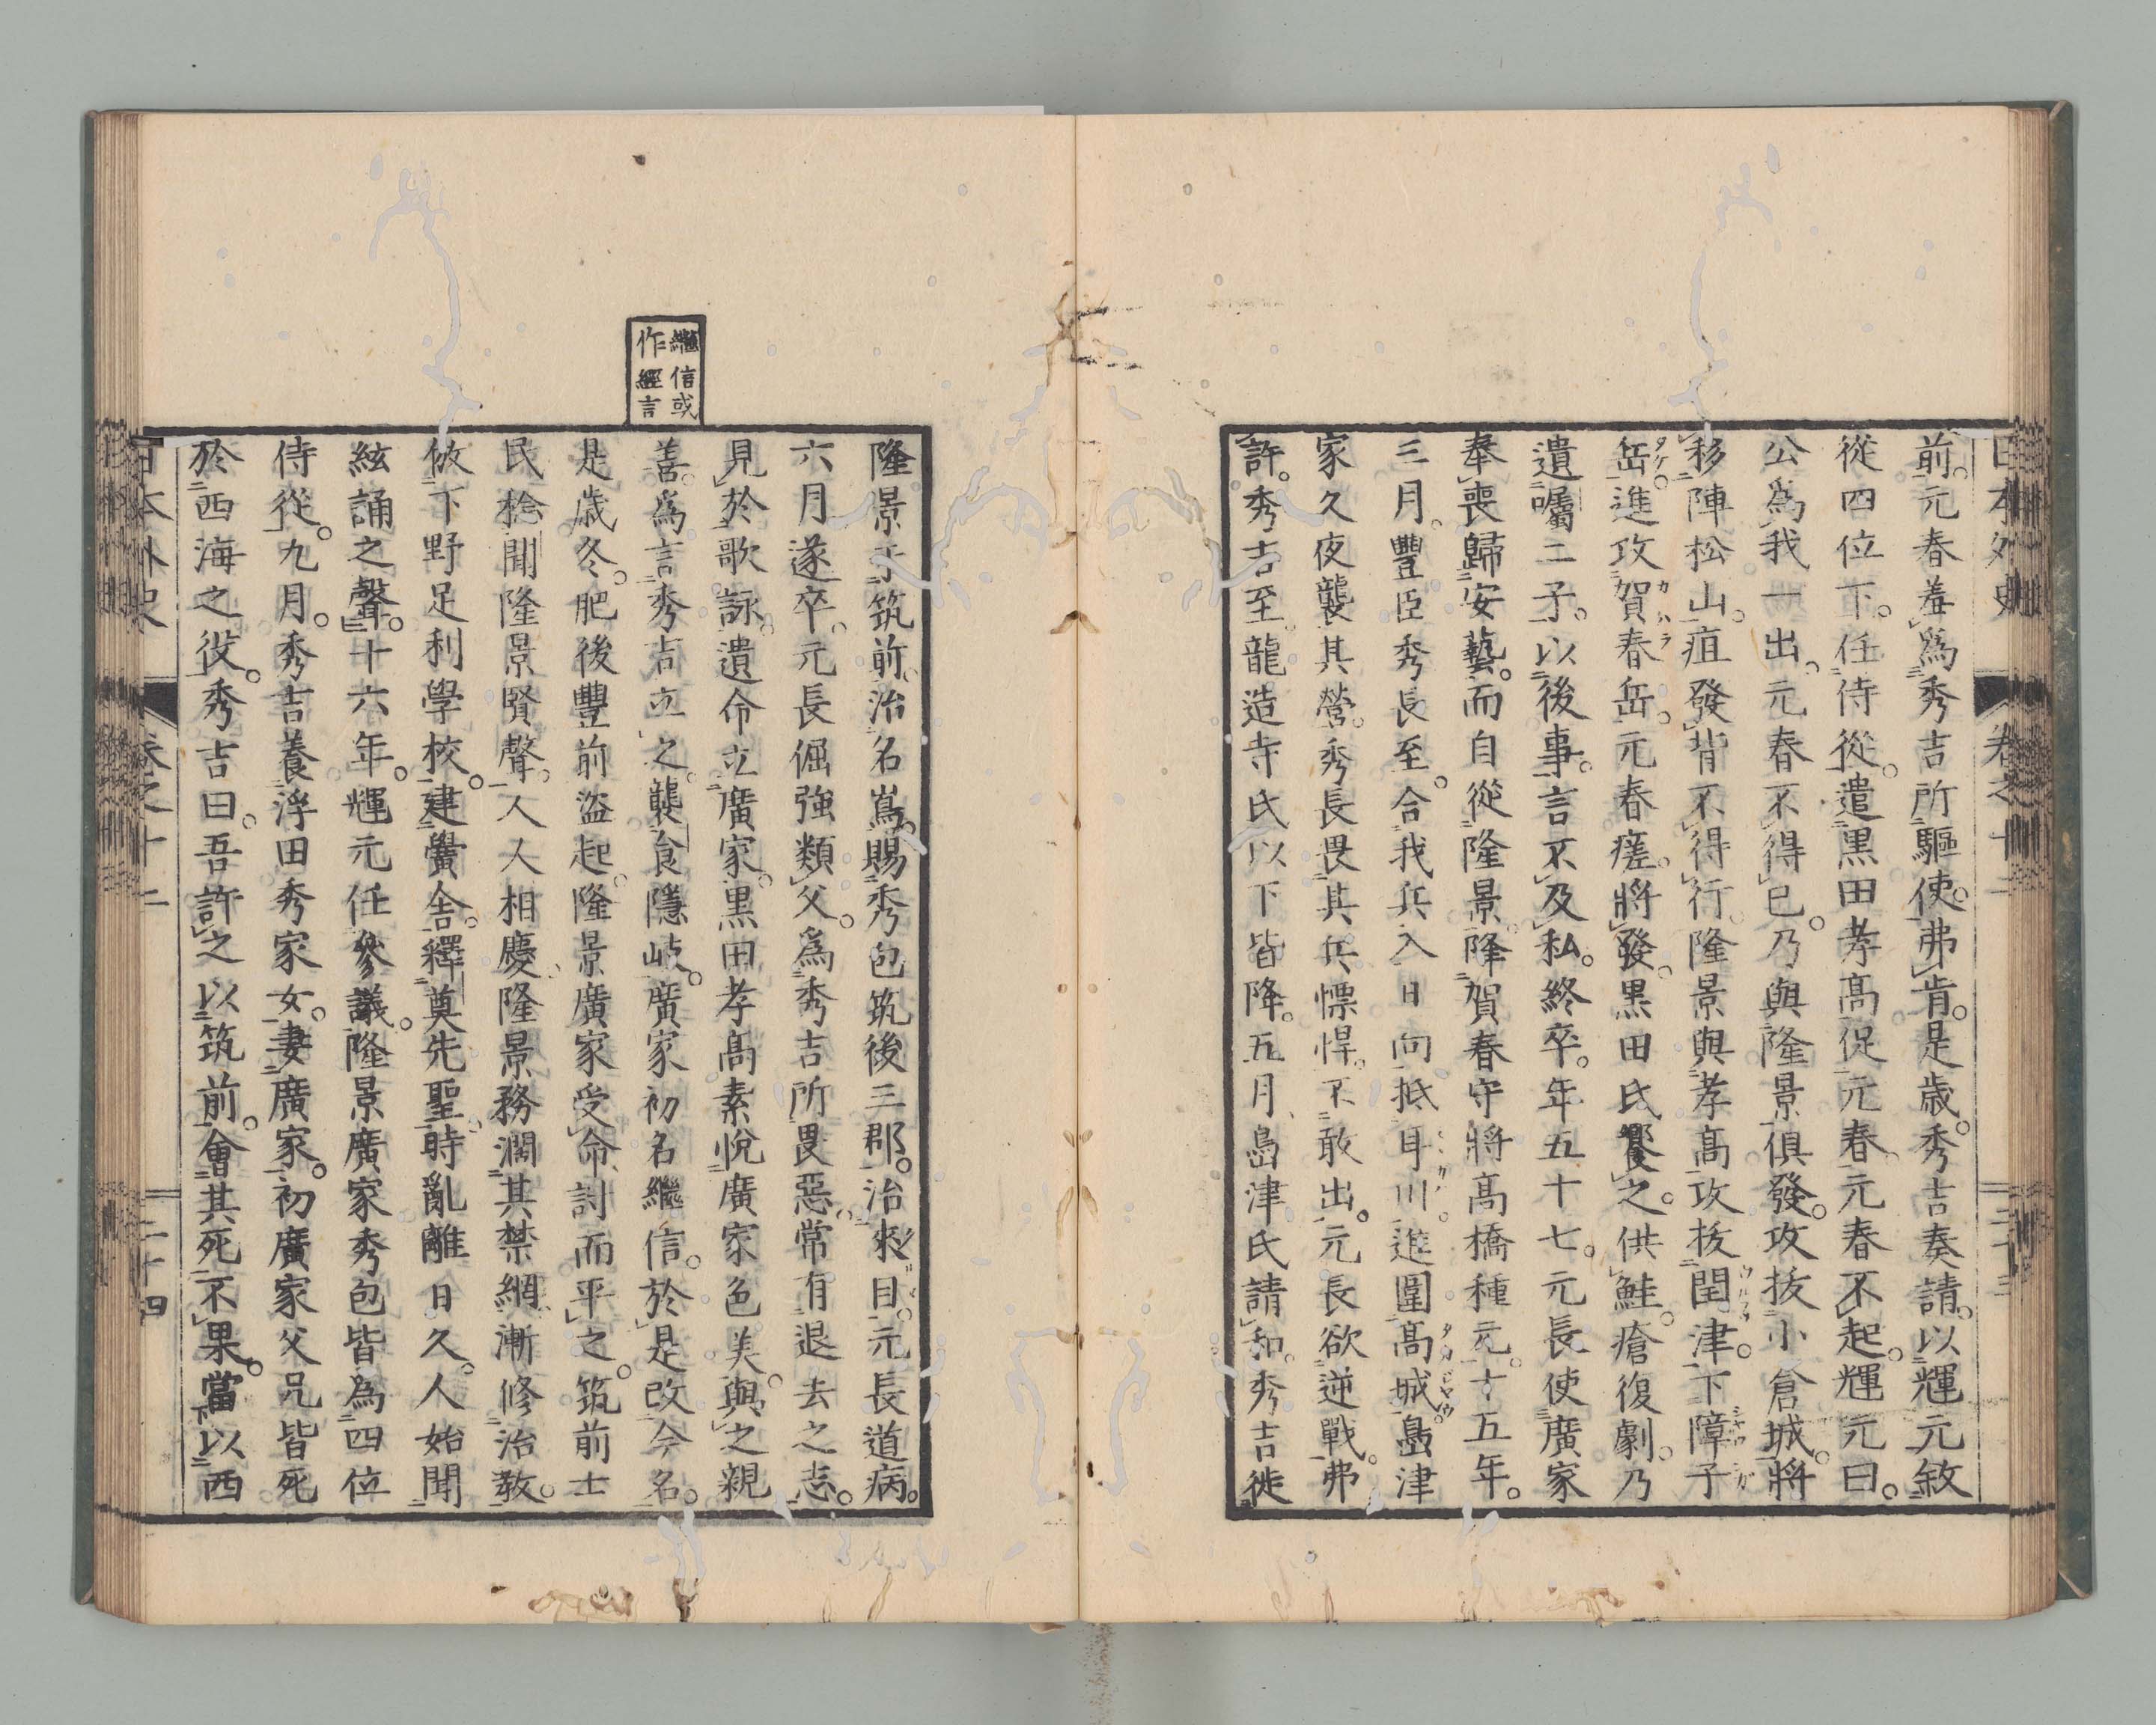 日本外史 卷之十二 二十三
前。元春羞爲秀吉所驅使。弗肯。是歳。秀吉奏請。以輝元敘
從四位下。任侍從。遣黒田孝高促元春。元春不起。輝元曰。
公爲我一出。元春不得已。乃與隆景俱發。攻抜小倉城。將
移陣松山。疽發背不得行。隆景與孝高攻抜閏津。下障子
岳。進攻賀春岳。元春瘥。將發。黒田氏饗之。供鮭。瘡復劇。乃
遺囑二子。以後事。言不及私。終卒。年五十七。元長使廣家
奉喪歸安藝。而自從隆景。降賀春守將高橋種元。十五年。
三月。豐臣秀長至。合我兵入日向。抵耳川。進圍高城。島津
家久夜襲其營。秀長畏其兵慓悍。不敢出。元長欲逆戰。弗
許。秀吉至。龍造寺氏以下皆降。五月、島津氏請和。秀吉徙
隆景于筑前。治名嶌。賜秀包筑後三郡。治來目。元長道病。
六月遂卒。元長倔強類父。爲秀吉所畏惡。常有退去之志。
見於歌詠。遺命立廣家。黒田孝高素悅廣家色美。與之親
善。爲言秀吉立之。襲食隱岐。廣家初名繼信。於是改今名。
繼信或
作經言
是歳冬。肥後豐前盜起。隆景廣家受命討而平之。筑前士
民捻聞隆景賢聲。人人相慶。隆景務濶其禁網。漸修治教。
倣下野足利學校。建黌舎。釋奠先聖。時亂離日久。人始聞
絃誦之聲。十六年。輝元任參議。隆景廣家秀包皆為四位
侍從。九月。秀吉養浮田秀家女。妻廣家。初廣家父兄皆死
於西海之役。秀吉曰。吾許之以筑前。會其死不果。當以西
日本外史 卷之十二 二十四